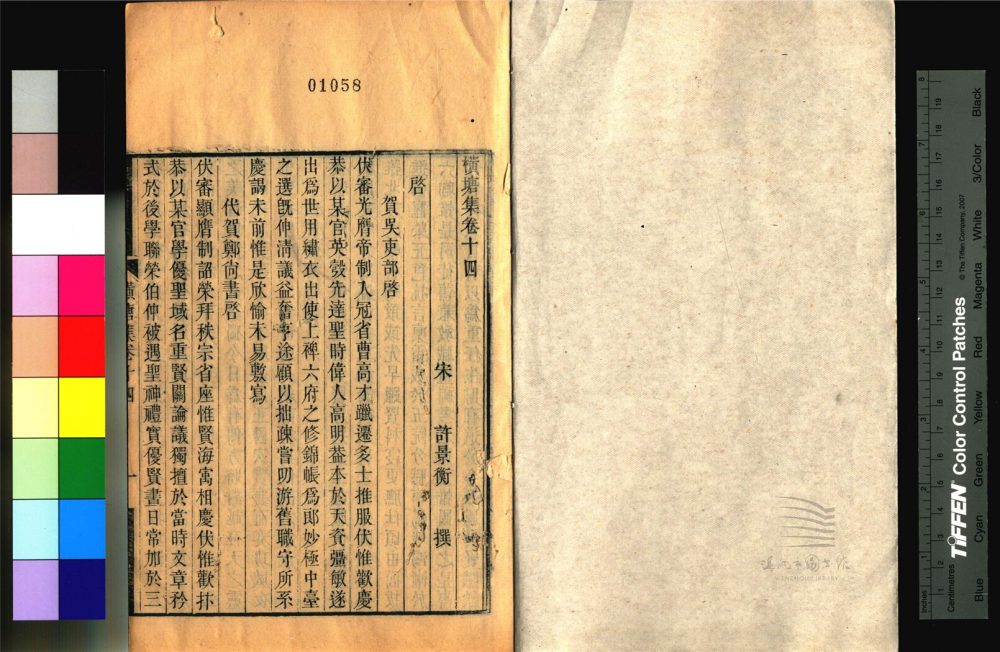 01058
橫塘集卷十四
宋 許景衡 撰
啓
賀吳吏部啓
伏審光膺帝制入冠省曹高才躐遷多士推服伏惟歡慶
恭以某官英發先達聖時偉人高明葢本於天資彊敏遂
出爲世用繡衣出使上禆六府之修錦帳爲郎妙極中臺
之選旣伸淸議益奮亨途顧以拙疎嘗叨游舊職守所系
慶謁未前惟是欣愉未易敷寫
代賀鄭尙書啓
伏審顯膺制詔榮拜秩宗省座惟賢海寓相慶伏惟歡抃
恭以某官學優聖域名重賢關論議獨擅於當時文章矜
式於後學聯榮伯仲被遇聖神禮實優賢書日常加於三
橫塘集卷十四
一
溫州市圖書館
WENZHOU LIBRARY
Inches
Centimetres
TIFFEN Color Control Patches
© The Tiffen Company, 2007
Blue
Cyan
Green
Yellow
Red
Magenta
White
3/Color
Black